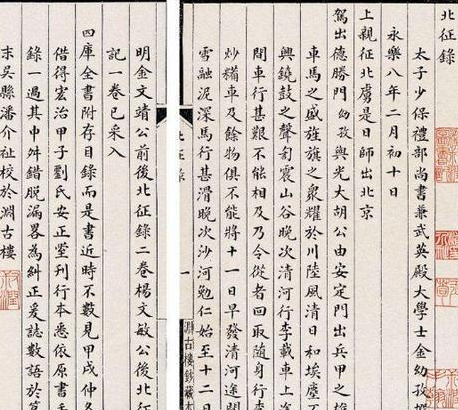 北征錄
太子少保禮部尚書兼武英殿大學士金幼孜
永樂八年二月初十日
上親征北虜是日師出北京
駕出德勝門幼孜與光大胡公由安定門出兵甲之
車馬之盛旌旗之眾耀於川陸風清日和埃塵不
興鐃鼓之聲訇震山谷晚次清河行李載車上
間車行甚艱不能相及乃令從者回取隨身行李
炒糒車及餘物俱不能將十一日早發清河途間
雪融泥深馬行甚滑晚次沙河勉仁始至十二日
一
淵古樓鈔藏本
明金文靖公前後北征錄二卷楊文敏公後北征
記一卷已采入
四庫全書附存目錄而是書近時不數見甲戌仲冬
借得宏治甲子劉氏安正堂刊行本悉依原書手
錄一過其中舛錯脫漏略為糾正爰誌數語於
末吳縣潘介祉校於淵古樓